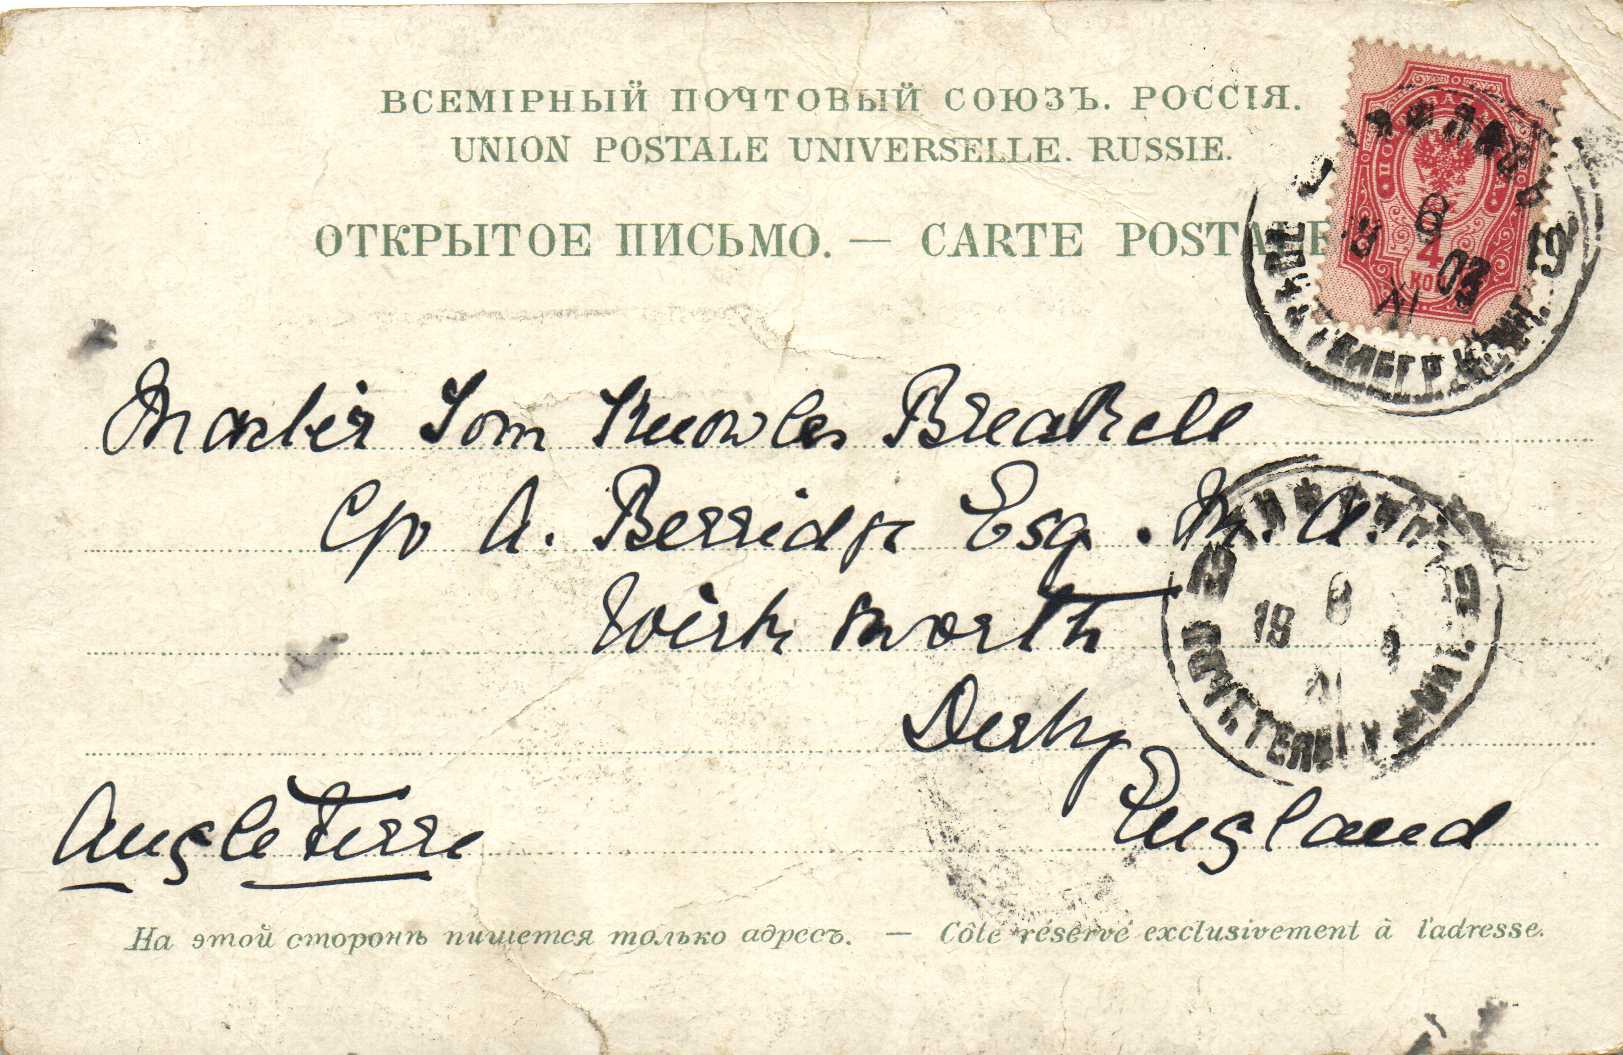 ВСЕМІРНЫЙ ПОЧТОВЫЙ СОЮЗЪ. РОССІЯ.
UNION POSTALE UNIVERSELLE. RUSSIE.
ОТКРЫТОЕ ПИСЬМО. — CARTE POSTALE
4
КОП
03
Master Tom Knowles Breakell
c/o A. Berridge Esq. M.A.
Wirksworth
Derby
England
Angleterre
На этой сторонѣ пишется только адресъ. — Côté réservé exclusivement à l'adresse.